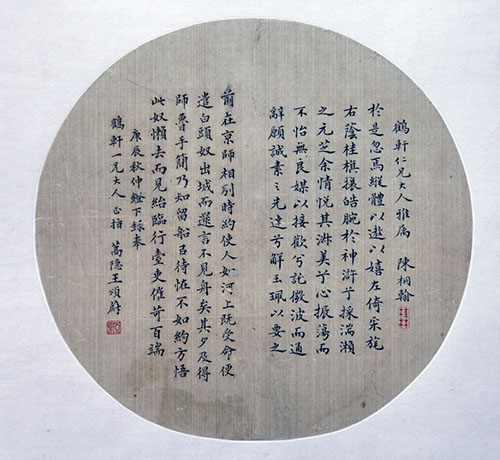 鶴軒仁兄大人雅屬 陳桐翰
於是忽焉縱體以遨以嬉左倚采旄
右蔭桂旗攘皓腕於神滸兮採湍瀨
之元芝余情悅其淑美兮心振蕩而
不怡無良媒以接歡兮託微波而通
辭願誠素之先達兮解玉珮以要之
前在京師相別時約使人如河上既受命便
遣白頭奴出城而還言不見舟矣其夕及得
師魯手簡乃知留船以待怪不如約方悟
此奴懶去而見紿臨行臺吏催苛百端
庚辰秋仲鐙下錄奉
鶴軒一兄大人正指 蒿隱王頌蔚